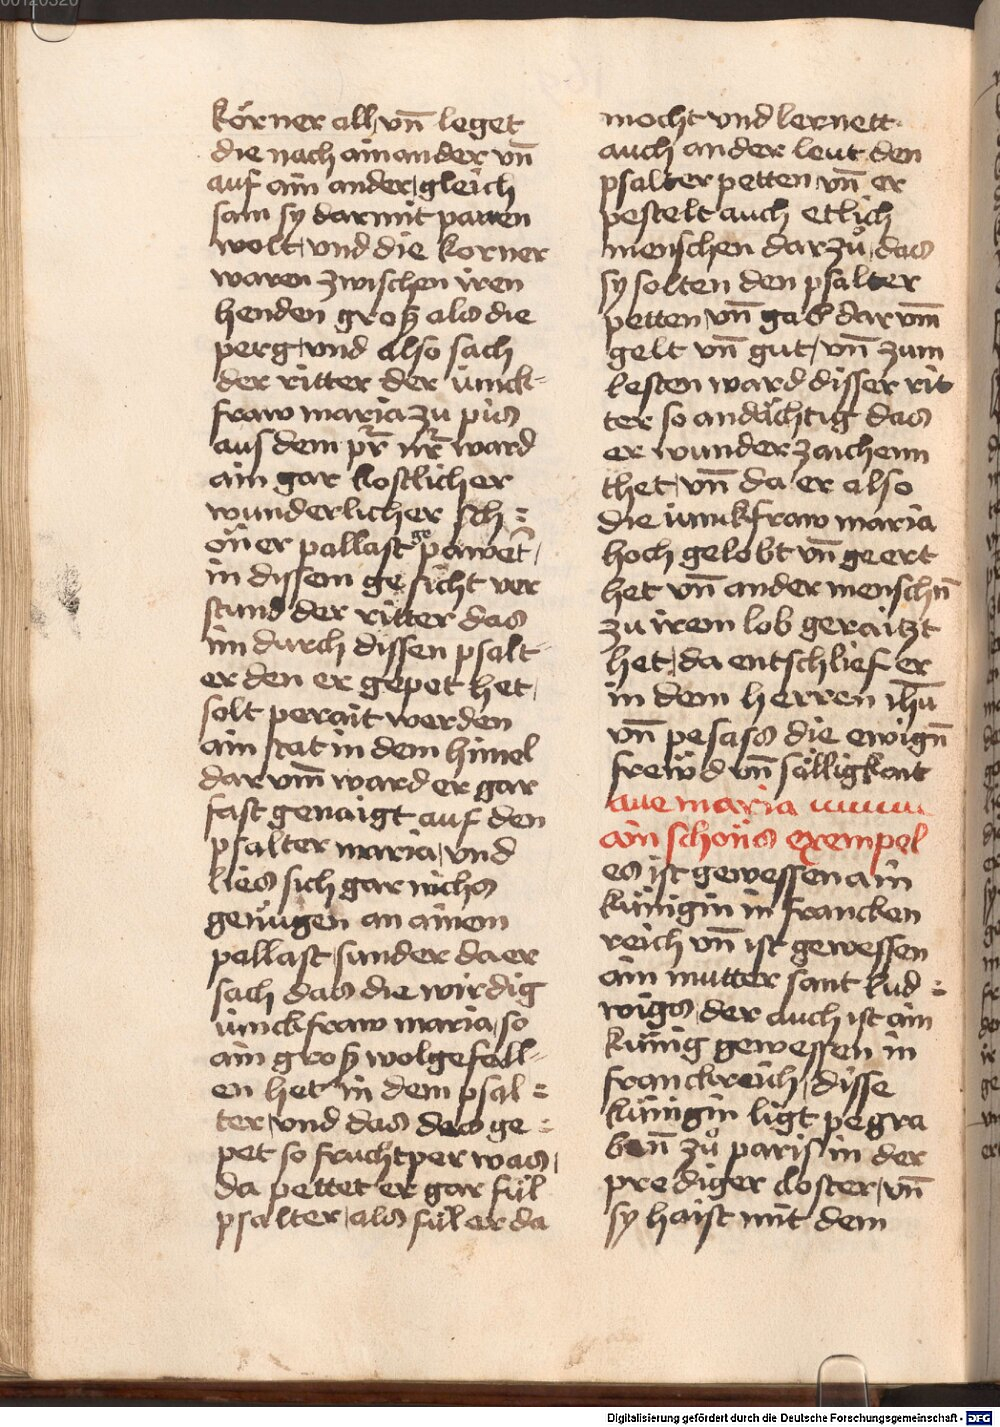 körner all, vn̄ leget
die nach ainander vn̄
auf ain ander, gleich
sam sy darmit pauen
wolt, vnd die korner
waren zwischen iren
henden grosz als die
perg, vnd also sach
der ritter der iunck-
fraw maria zu pus
aus dem pr̄ nr̄ ward
ain gar kostlicher
wunderlicher sch=
öner pallast gepawet,
in dissem gesicht ver
stund der ritter das
im durch dissen psalt-
er den er gepet het,
solt perait werden
ain stat in dem himel
dar vm̄ ward er gar
fast genaigt auf den
psalter maria, vnd
lies sich gar nichs
genügen an ainem
pallast, sunder da er
sach das die wirdig
iunckfraw maria, so
ain grosz wolgefall-
en het in dem psal=
ter, vnd das das ge=
pet so fruchtper was,
da pettet er gar fül
psalter, als fül er da
mocht vnd lernett
auch ander leut den
psalter petten, vn̄ er
pestelt auch etlich
menschen darzů, das
sy solten den psalter
petten, vn̄ gab dar vm̄
gelt vn̄ gut, vn̄ zum
lesten ward disser rit
ter so andächtig das
er wunderzaichenn
thet, vn̄ da er also
die iunckfraw maria
hoch gelobt vn̄ geert
het vn̄ ander menschn̄
zu irem lob geraitzt
het, da entschlief er
in dem herren ihū
vn̄ pesass die ewign̄
freẅd vn̄ sälligkait
aue maria
ain schöns exempel
es ist gewessen ain
künigin in francken
reich vn̄ ist gewessen
ain mutter sant lud=
wigs, der auch ist ain
künig gewessen in
franckreich, disse
künigin ligt pegra
ben̄ zů paris in der
prediger closter, vn̄
sy haist mit dem
Digitalisierung gefördert durch die Deutsche Forschungsgemeinschaft - DFG